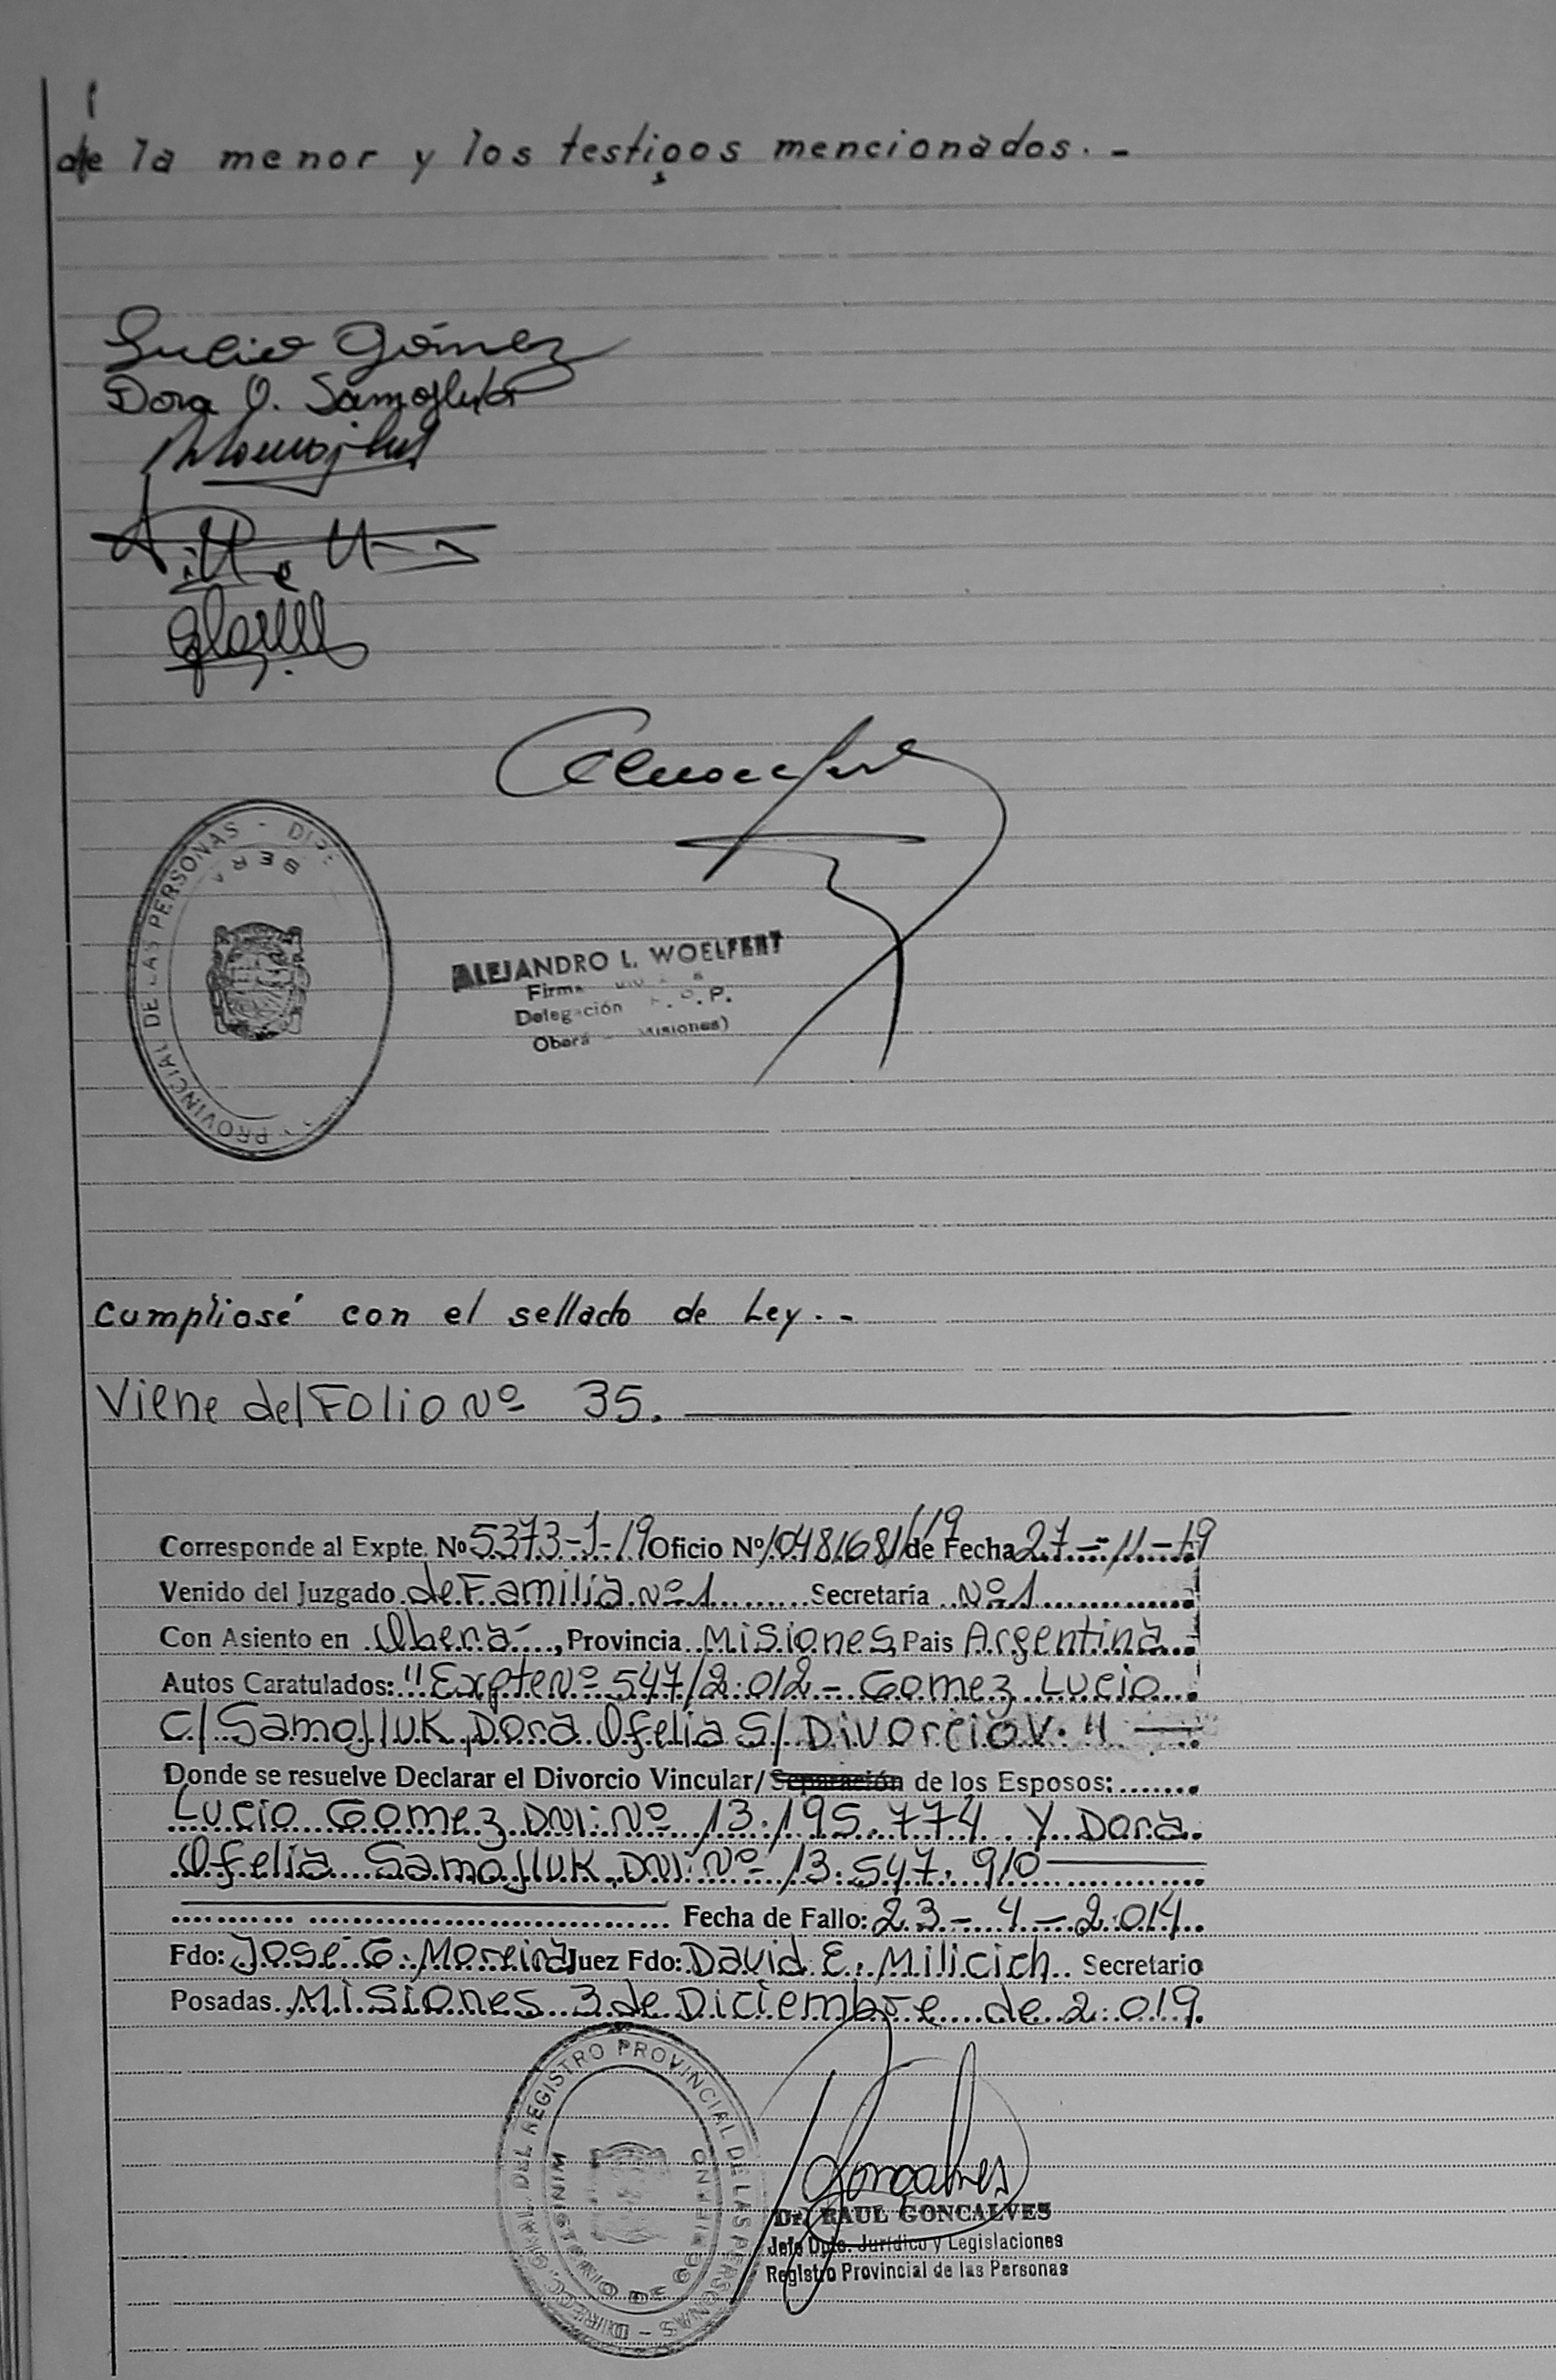 de la menor y los testigos mencionados.-
Lucio Gómez
Dora O. Samojluk
PROVINCIAL DE LAS PERSONAS - DIRE
ALEJANDRO L. WOELFERT
Firma
Delegación R. P.
Oberá - Misiones)
Cumpliosé con el sellado de Ley.-
Viene del Folio Nº 35.
Corresponde al Expte. Nº 5373-J-19 Oficio Nº 1048168/19 de Fecha 27-11-19
Venido del Juzgado de Familia Nº 1 Secretaría Nº 1
Con Asiento en Oberá, Provincia Misiones País Argentina
Autos Caratulados: "Expte Nº 547/2.012 - Gomez Lucio
C/ Samojluk, Dora Ofelia S/ Divorcio V."
Donde se resuelve Declarar el Divorcio Vincular/Separación de los Esposos:
Lucio Gomez DNI: Nº 13.195.774. Y Dora
Ofelia Samojluk, DNI: Nº 13.547.910
Fecha de Fallo: 23-4-2.014
Fdo: José G. Moreira Juez Fdo: David E. Milicich Secretario
Posadas, Misiones 3 de Diciembre de 2.019.
DIRECC. GRAL. DEL REGISTRO PROVINCIAL DE LAS PERSONAS -
MINISTERIO DE GOBIERNO
Goncalves
Dr. RAUL GONCALVES
Jefe Dpto. Jurídico y Legislaciones
Registro Provincial de las Personas